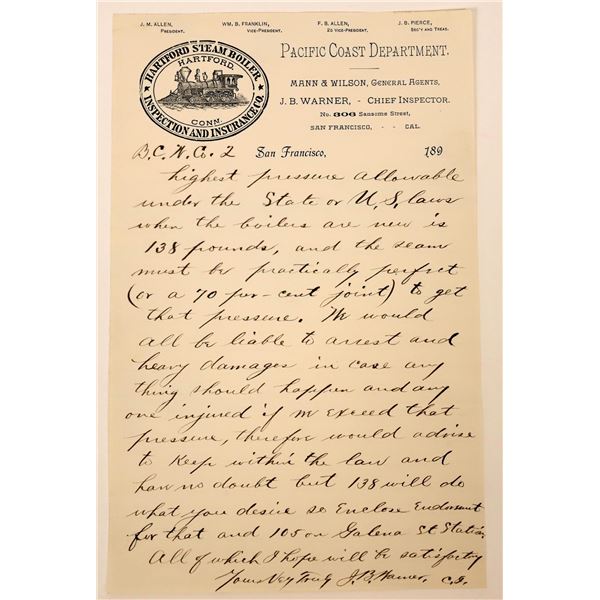 J. M. ALLEN, WM. B. FRANKLIN, F. B. ALLEN, J. B. PIERCE,
PRESIDENT. VICE-PRESIDENT. 2D VICE-PRESIDENT. SEC'Y AND TREAS.
HARTFORD STEAM BOILER
HARTFORD.
CONN.
INSPECTION AND INSURANCE CO.
PACIFIC COAST DEPARTMENT.
MANN & WILSON, GENERAL AGENTS,
J. B. WARNER, - CHIEF INSPECTOR.
No. 306 Sansome Street,
SAN FRANCISCO, - - CAL.
B. C. W. Co. 2 San Francisco, 189
highest pressure allowable
under the State or U.S. laws
when the boilers are new is
138 pounds, and the seam
must be practically perfect
(or a 70 per-cent joint) to get
that pressure. We would
all be liable to arrest and
heavy damages in case any
thing should happen and any
one injured if we exceed that
pressure, therefore would advise
to keep within the law and
have no doubt but 138 will do
what you desire so Enclose Endorsment
for that and 105 on Galena St Station
All of which I hope will be satisfactory
Yours Very Truly J. B. Warner, C. I.